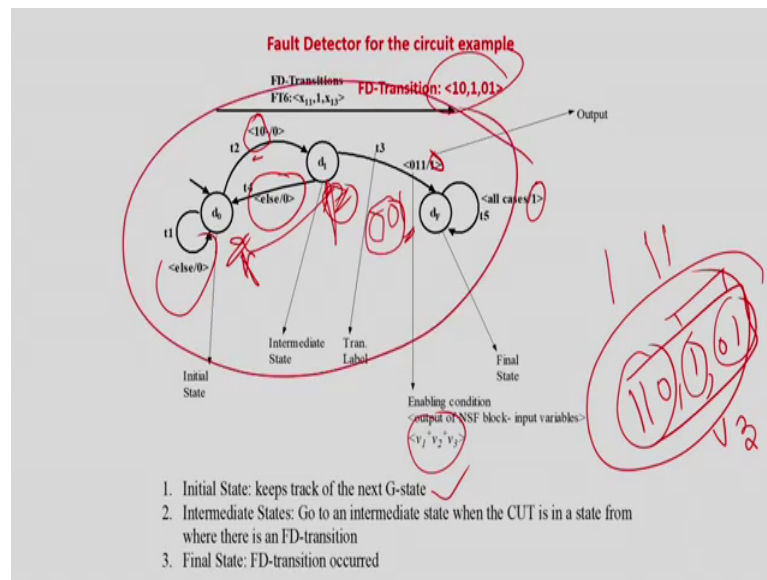 Fault Detector for the circuit example
FD-Transitions
FT6:<x₁₁,1,x₁₃>
FD-Transition: <10,1,01>
Output
<10-/0>
t2
t3
d₁
<011/1>
t4
<else/0>
d₀
t1
<else/0>
d_F
<all cases/1>
t5
00
110, 1, 01
Initial
State
Intermediate
State
Tran.
Label
Final
State
Enabling condition
<output of NSF block- input variables>
<v₁⁺v₂⁺v₃>
1. Initial State: keeps track of the next G-state
2. Intermediate States: Go to an intermediate state when the CUT is in a state from
where there is an FD-transition
3. Final State: FD-transition occurred